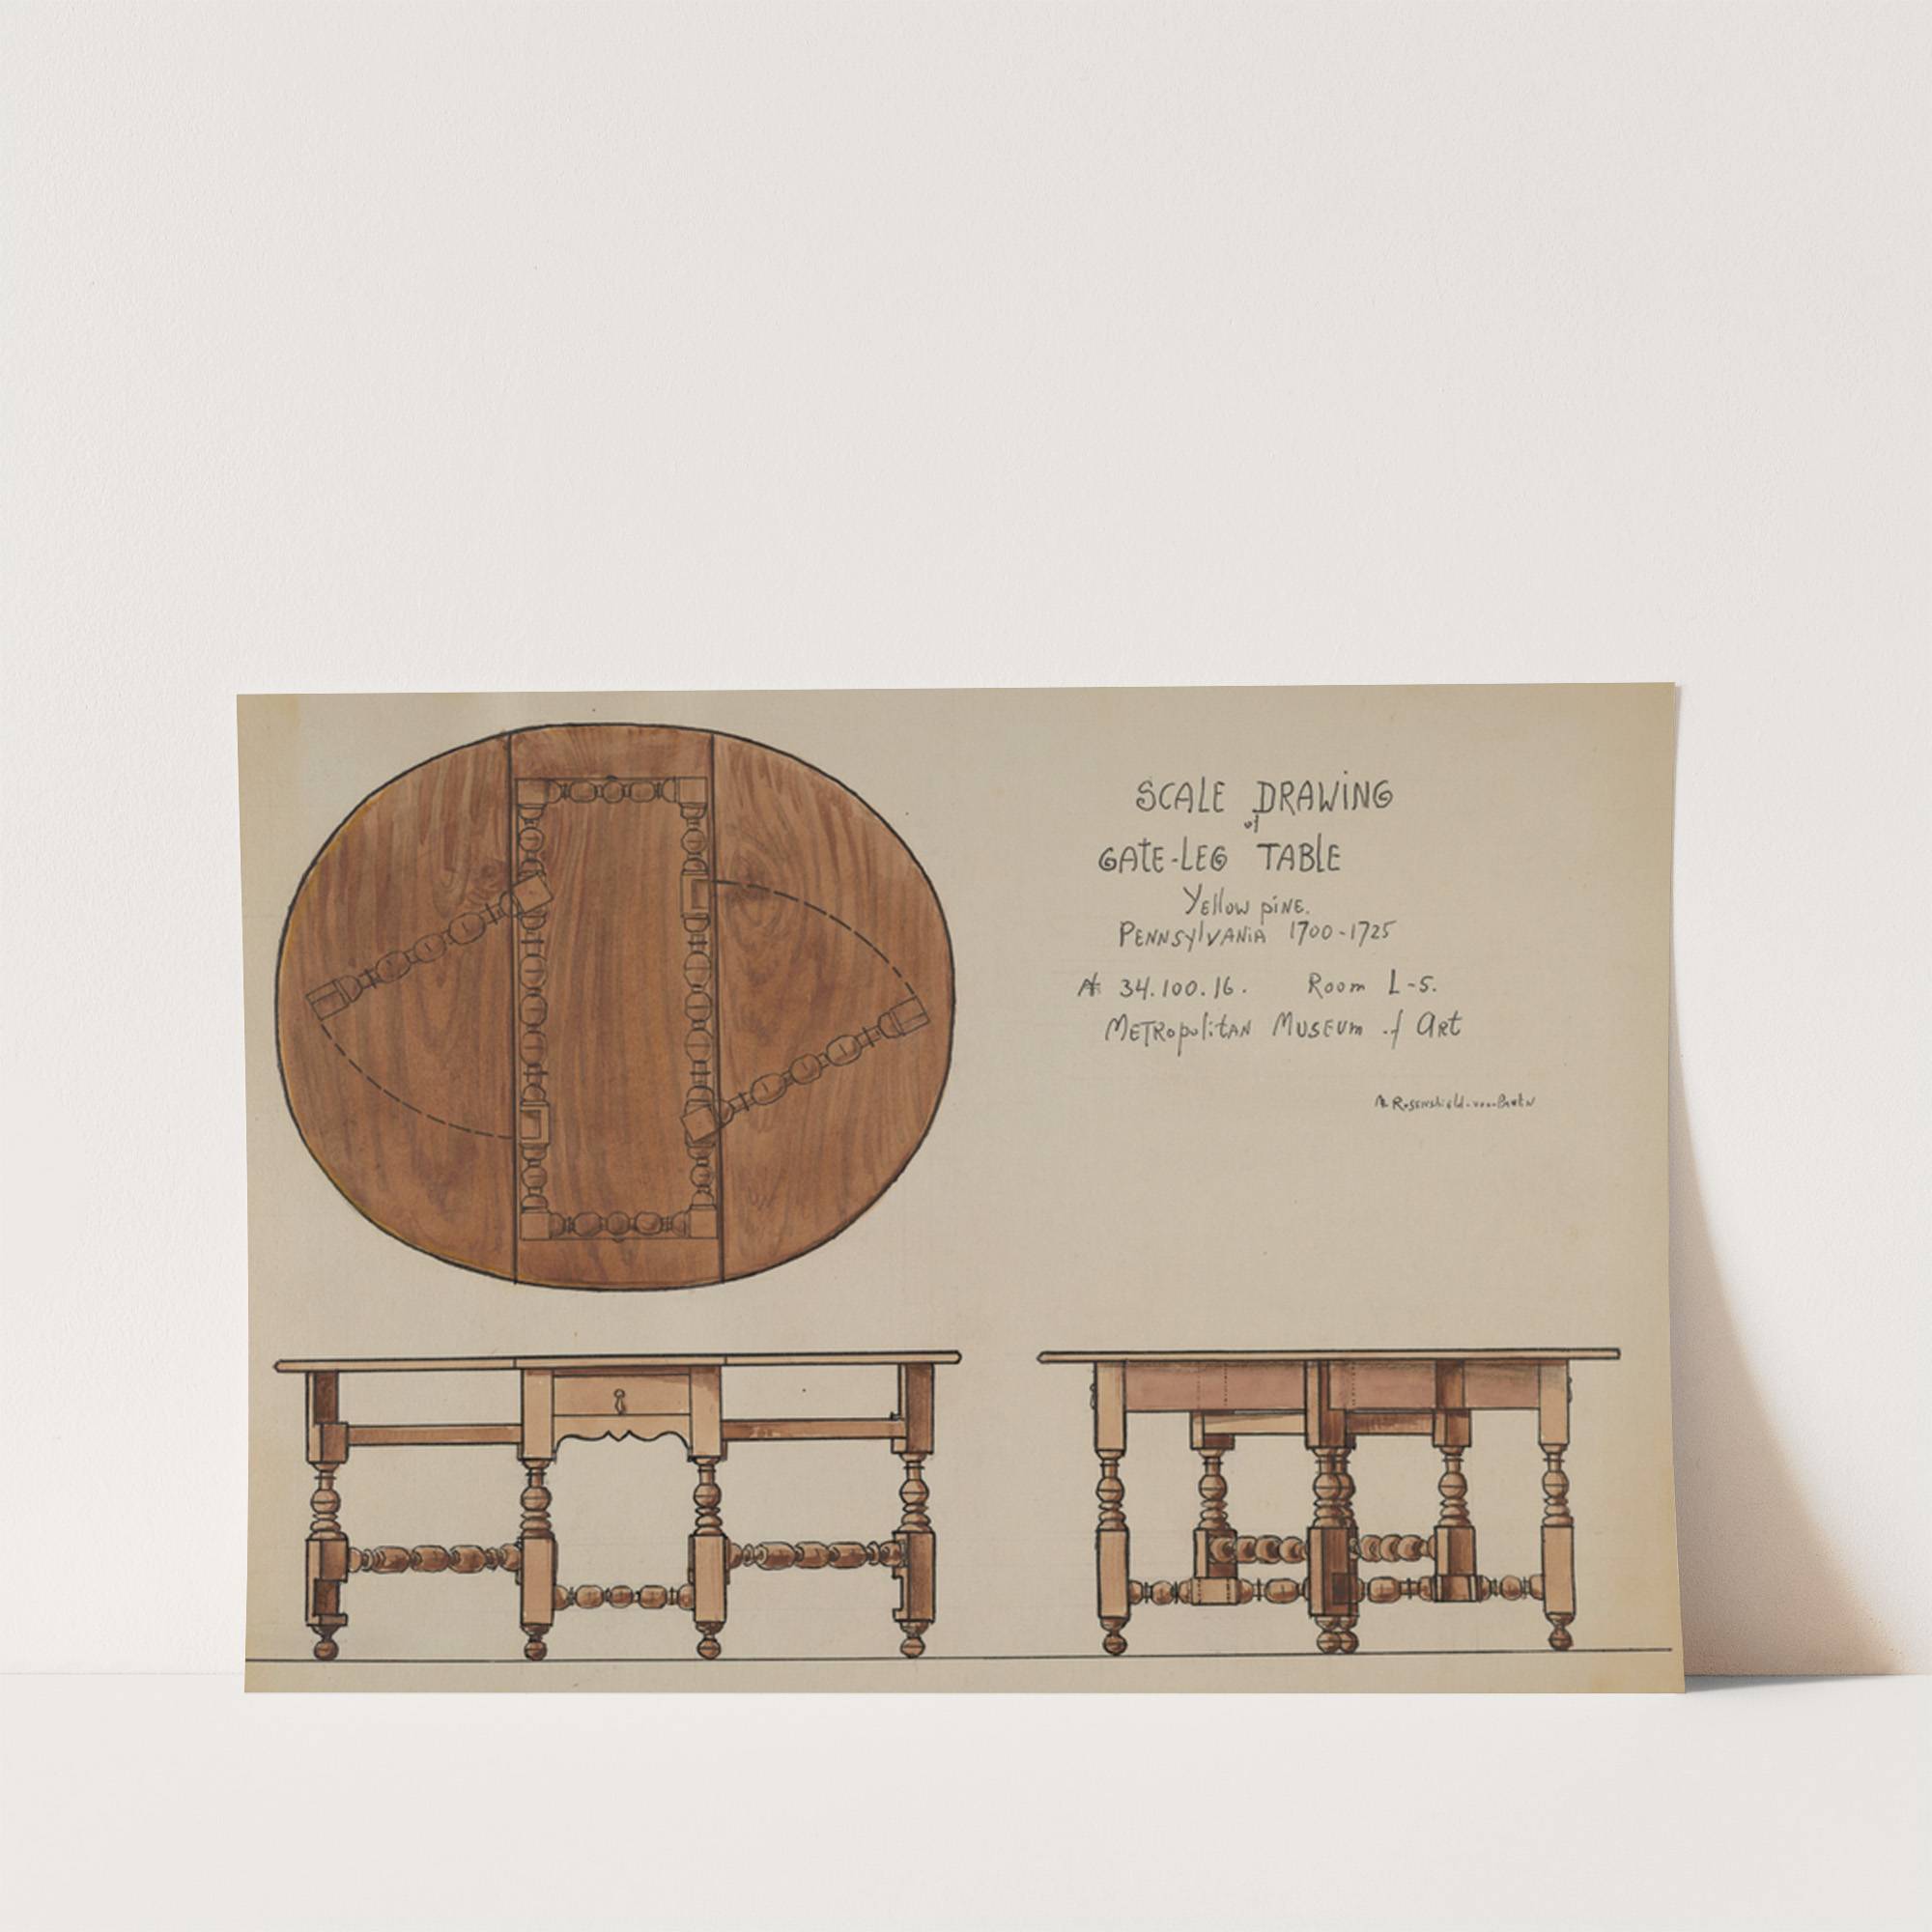 SCALE DRAWING
of
GATE-LEG TABLE
Yellow pine.
PENNSYLVANIA 1700-1725
# 34.100.16. Room L-5.
METROPOLITAN MUSEUM of ART